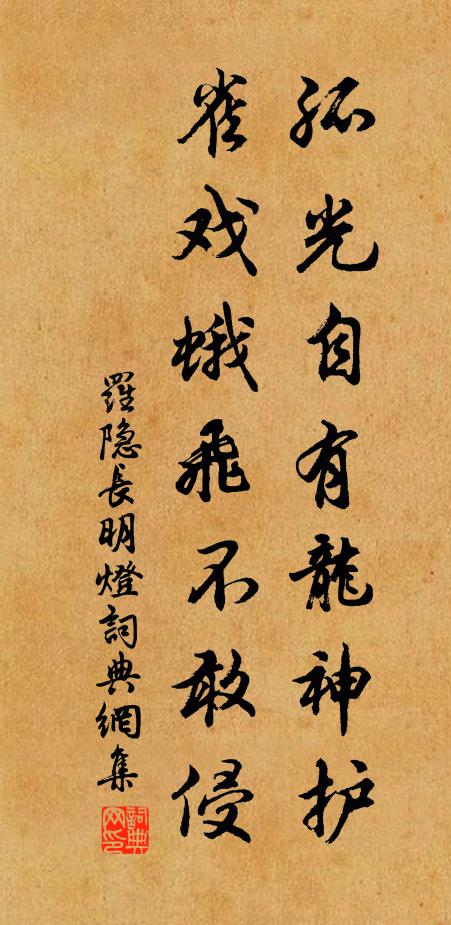 孤光自有龍神护
雀戏蛾飛不敢侵
羅隐長明燈詞典網集
詞典网印